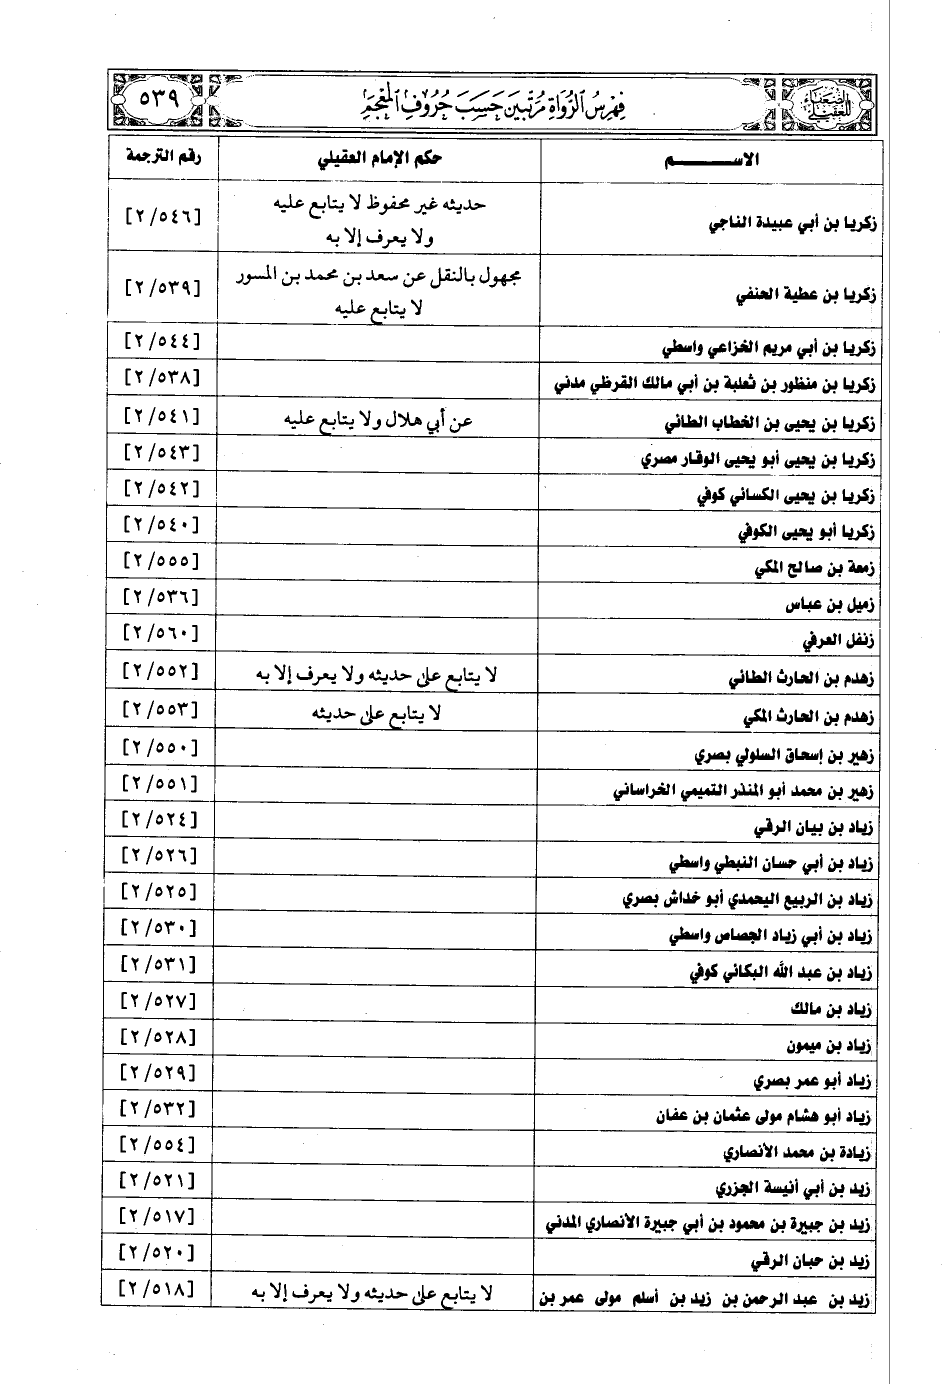 الضعفاء للعقيلي فهرس الرواة مرتبين حسب حروف المعجم ٥٣٩
الاســـــــم حكم الإمام العقيلي رقم الترجمة
زكريا بن أبي عبيدة الناجي حديثه غير محفوظ لا يتابع عليه [٢/٥٤٦]
ولا يعرف إلا به
زكريا بن عطية الحنفي مجهول بالنقل عن سعد بن محمد بن المسور [٢/٥٣٩]
لا يتابع عليه
زكريا بن أبي مريم الخزاعي واسطي [٢/٥٤٤]
زكريا بن منظور بن ثعلبة بن أبي مالك القرظي مدني [٢/٥٣٨]
زكريا بن يحيى بن الخطاب الطائي عن أبي هلال ولا يتابع عليه [٢/٥٤١]
زكريا بن يحيى أبو يحيى الوقار مصري [٢/٥٤٣]
زكريا بن يحيى الكسائي كوفي [٢/٥٤٢]
زكريا أبو يحيى الكوفي [٢/٥٤٠]
زمعة بن صالح المكي [٢/٥٥٥]
زميل بن عباس [٢/٥٣٦]
زنفل العرفي [٢/٥٦٠]
زهدم بن الحارث الطائي لا يتابع على حديثه ولا يعرف إلا به [٢/٥٥٢]
زهدم بن الحارث المكي لا يتابع على حديثه [٢/٥٥٣]
زهير بن إسحاق السلولي بصري [٢/٥٥٠]
زهير بن محمد أبو المنذر التميمي الخراساني [٢/٥٥١]
زياد بن بيان الرقي [٢/٥٢٤]
زياد بن أبي حسان النبطي واسطي [٢/٥٢٦]
زياد بن الربيع اليحمدي أبو خداش بصري [٢/٥٢٥]
زياد بن أبي زياد الجصاص واسطي [٢/٥٣٠]
زياد بن عبد الله البكائي كوفي [٢/٥٣١]
زياد بن مالك [٢/٥٢٧]
زياد بن ميمون [٢/٥٢٨]
زياد أبو عمر بصري [٢/٥٢٩]
زياد أبو هشام مولى عثمان بن عفان [٢/٥٣٢]
زيادة بن محمد الأنصاري [٢/٥٥٤]
زيد بن أبي أنيسة الجزري [٢/٥٢١]
زيد بن جبيرة بن محمود بن أبي جبيرة الأنصاري المدني [٢/٥١٧]
زيد بن حبان الرقي [٢/٥٢٠]
زيد بن عبد الرحمن بن زيد بن أسلم مولى عمر بن لا يتابع على حديثه ولا يعرف إلا به [٢/٥١٨]